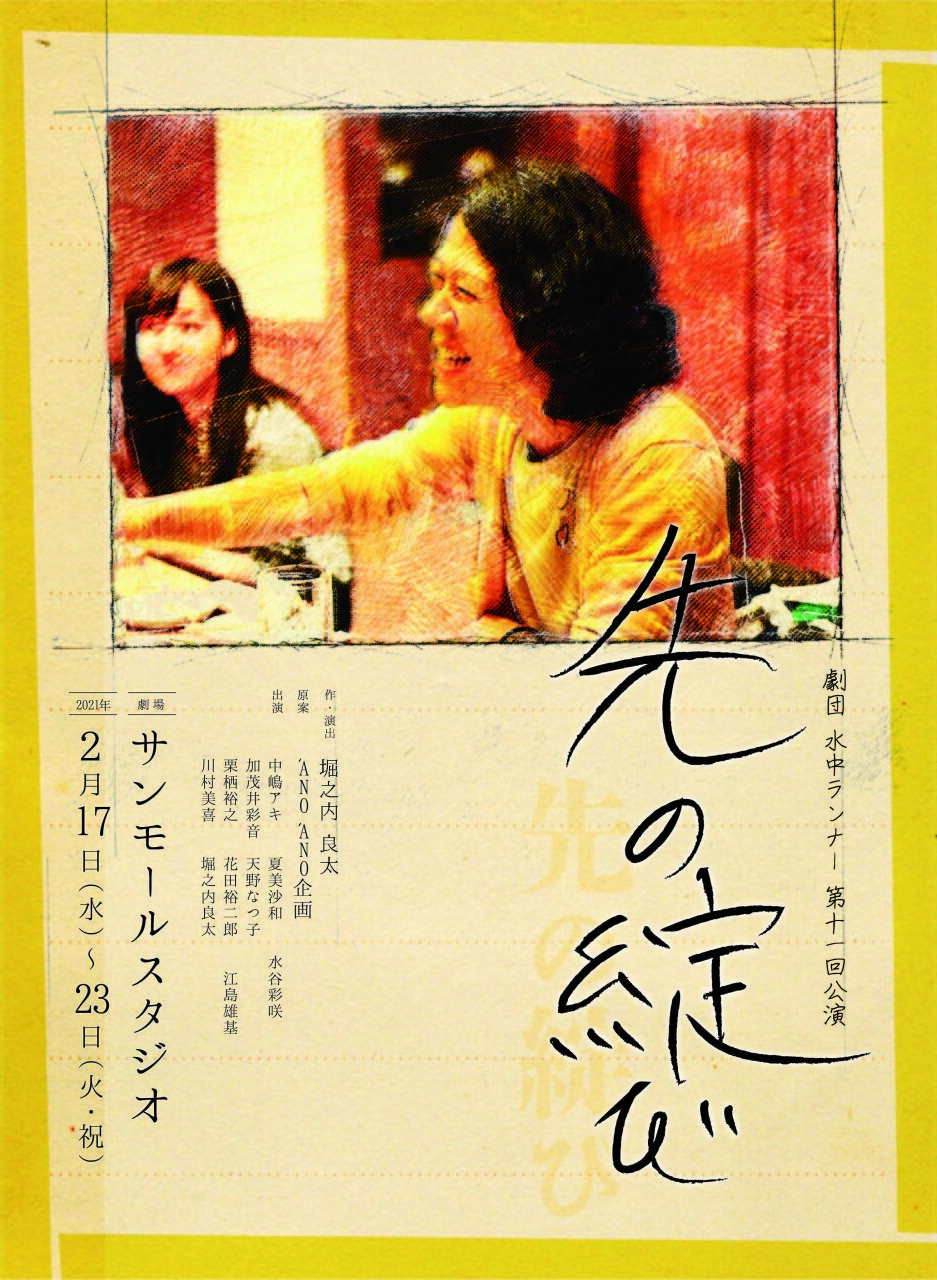 劇団 水中ランナー 第十一回公演
先の綻び
先の綻び
作・演出 堀之内 良太
原案 'ANO 'ANO企画
出演
中嶋アキ 夏美沙和 水谷彩咲
加茂井彩音 天野なつ子
栗栖裕之 花田裕二郎 江島雄基
川村美喜 堀之内良太
劇場
サンモールスタジオ
2021年
2月17日(水)～23日(火・祝)